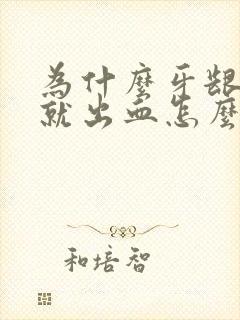 为什麼牙龈
就出血怎麼
和培智